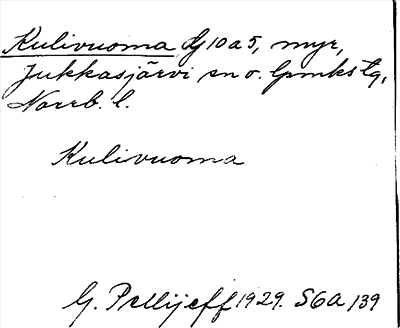 Kulivuoma, dj 10 a 5, myr,
Jukkasjärvi sn o. lpmks tg,
Norrb. l.
Kulivuoma
G. Pellijeff 1929. S6A 139